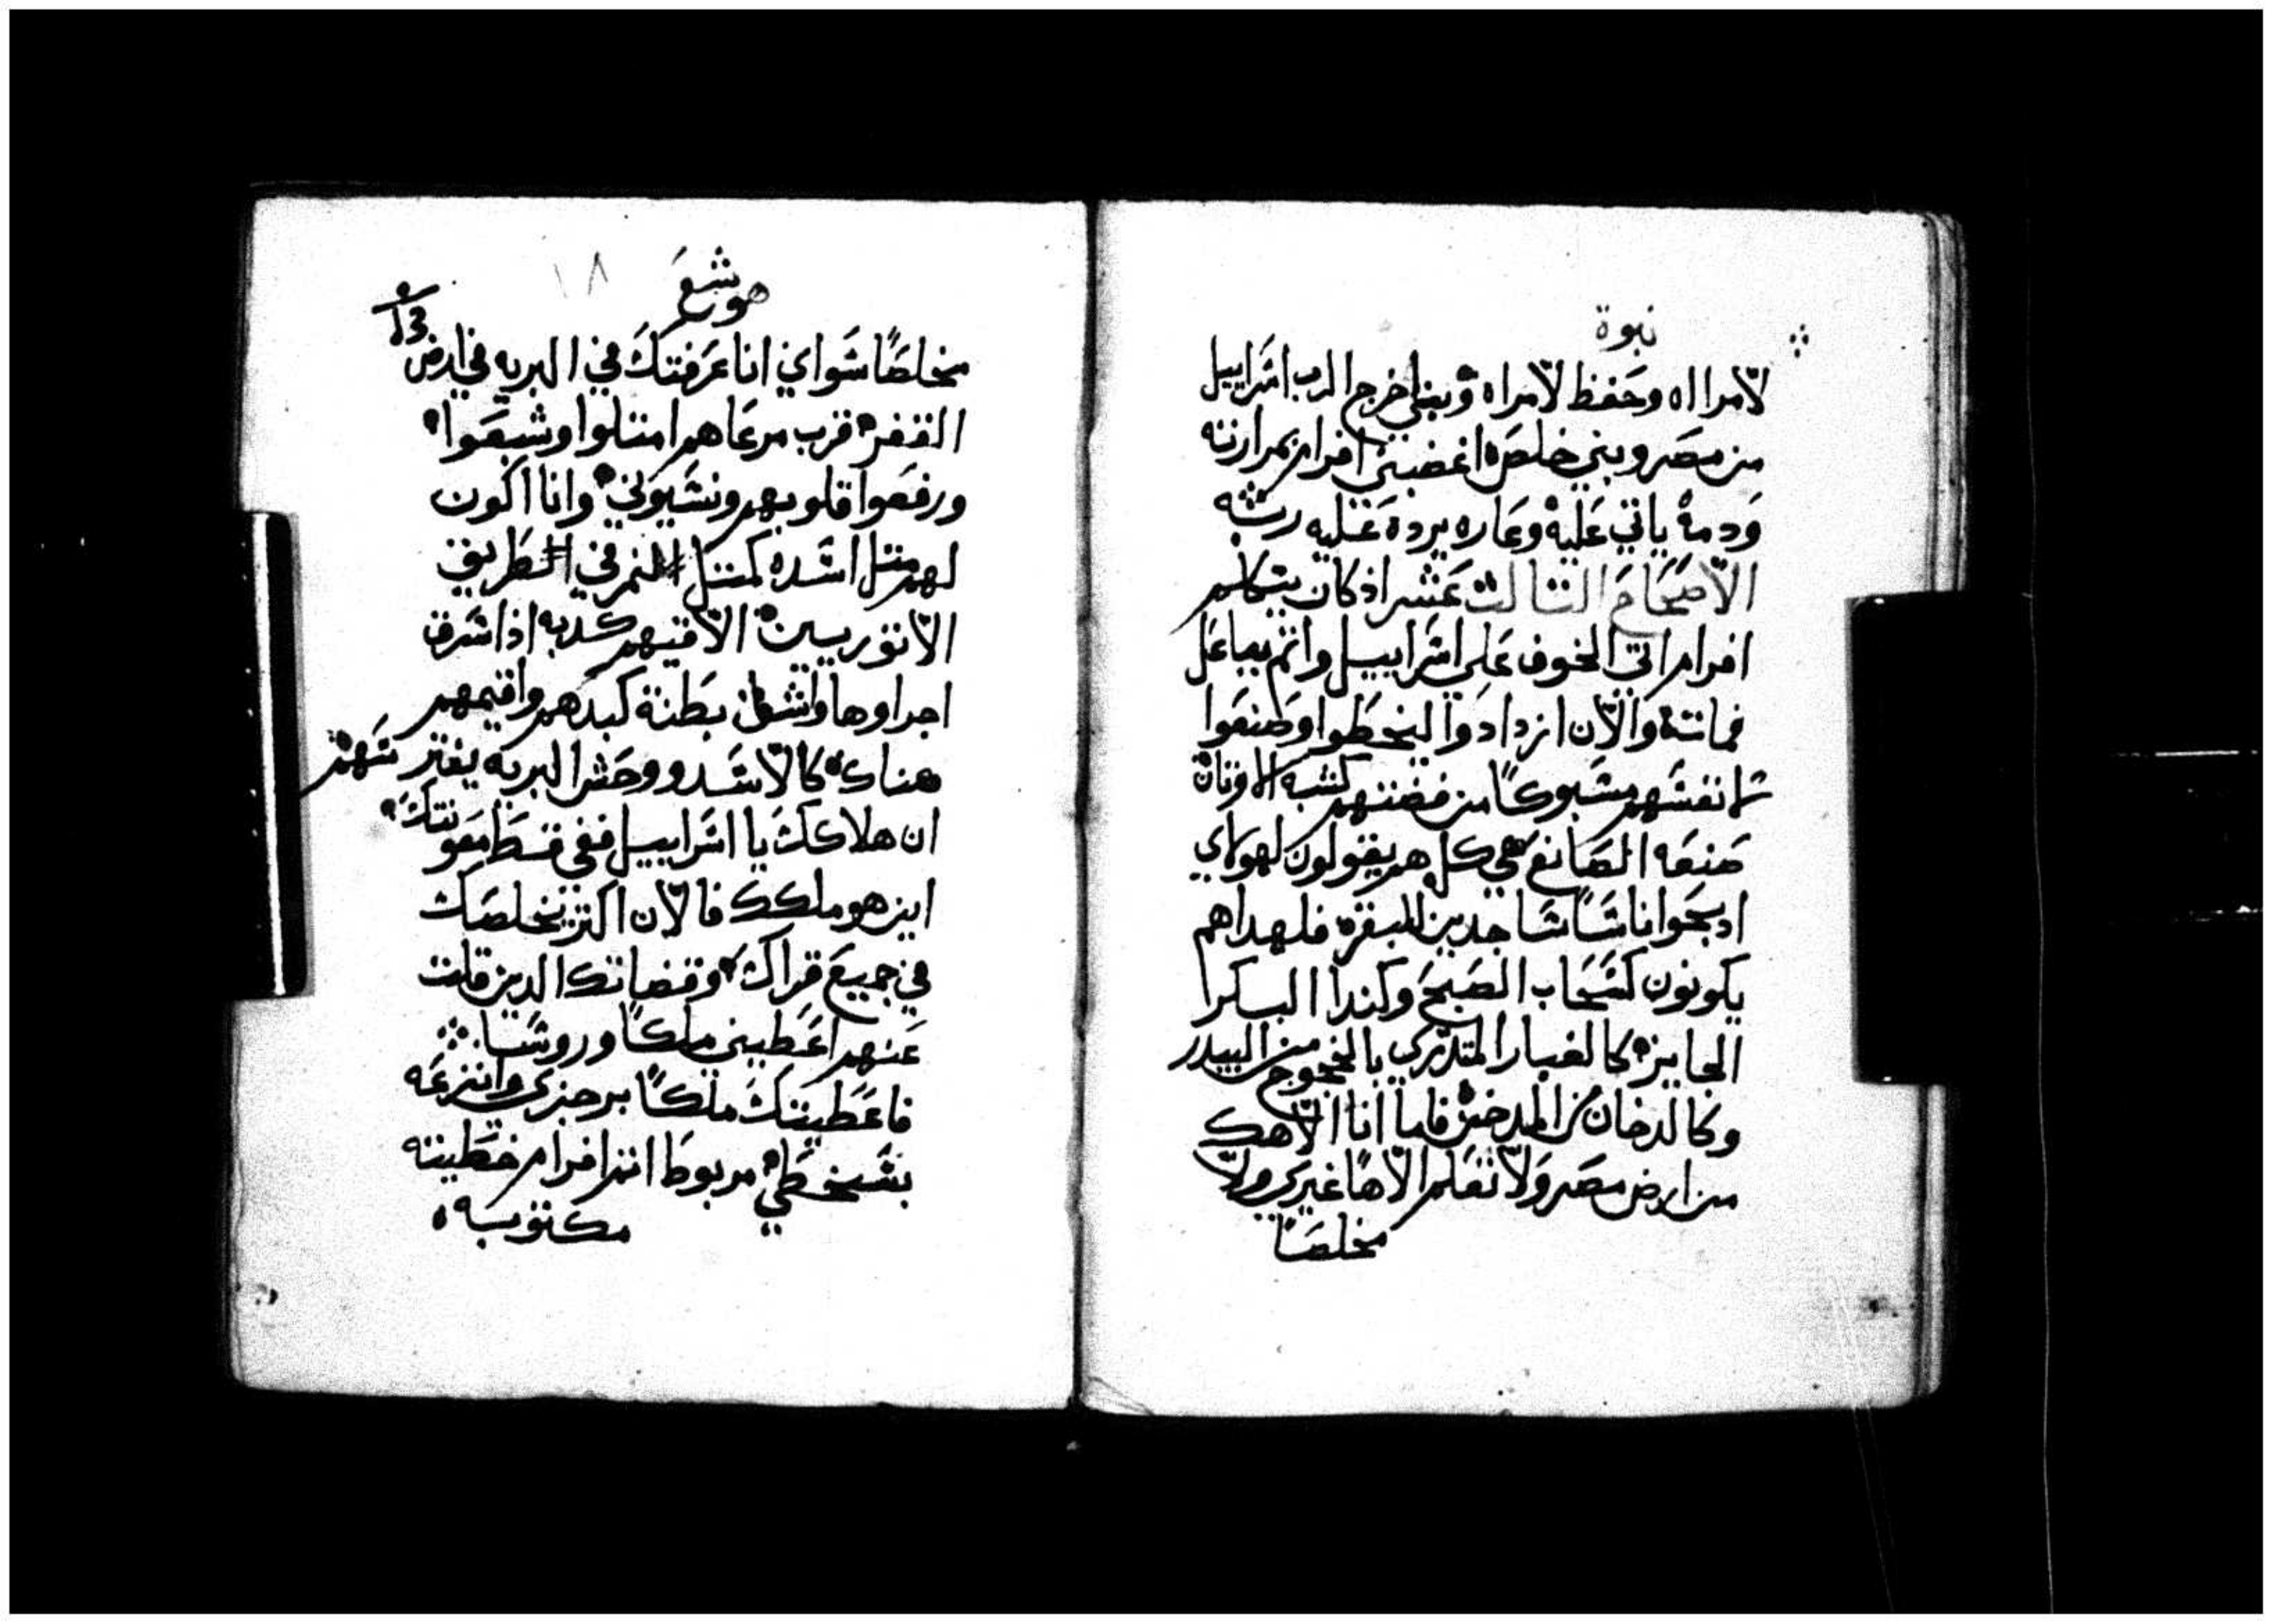 نبوة
لامرااه وحفظ لامراه وبنبي اخرج الرب اسراييل
من مصر وبنبي خلصه اغضبني افرام بمرارته
ودمه ياتي عليه وعاره يرده عليه ربه
الاصحاح الثالث عشر اذ كان يتكلم
افرام اتي الخوف علي اسراييل واثم بباعل
فماته والان ازدادوا ليخطوا وصنعوا
لانفسهم مسبوكا من فضتهم كشبه الاوثان
صنعه الصانع هي كلهم يقولون لهولاي
ادبحوا اناسا ساجدين للبقره فلهدا هم
يكونون كسحاب الصبح وكندا الباكرا
الجايزه كالغبار المتذري بالخروج من البيدر
وكالدخان من المدخنه فاما انا الاهك
من ارض مصر ولا تعلم الاها غيري ولا
مخلصا
هوشع
١٨
مخلصا سواي انا عرفتك في البريه في ارض
القفره قرب مرعاهم امتلوا وشبعوا
ورفعوا قلوبهم ونسيوني وانا اكون
لهم مثل اسده كمثل النمر في الطريق
الاثوريين الاقيهم كدبه اذا سرق
اجراوها واشق بطنة كبدهم وافنيهم
هناك كالاسد ووحش البريه يفترسهم
ان هلاكك يا اسراييل ففي قسط معونتك
اين هو ملكك فالان اكتر يخلصك
في جميع قراك وقضاتك الدين قلت
عنهم اعطيني ملكا وروسا
فاعطيتك ملكا برجزي وانتزعه
بسخطي مربوط اثم افرام خطيته
مكتوبه